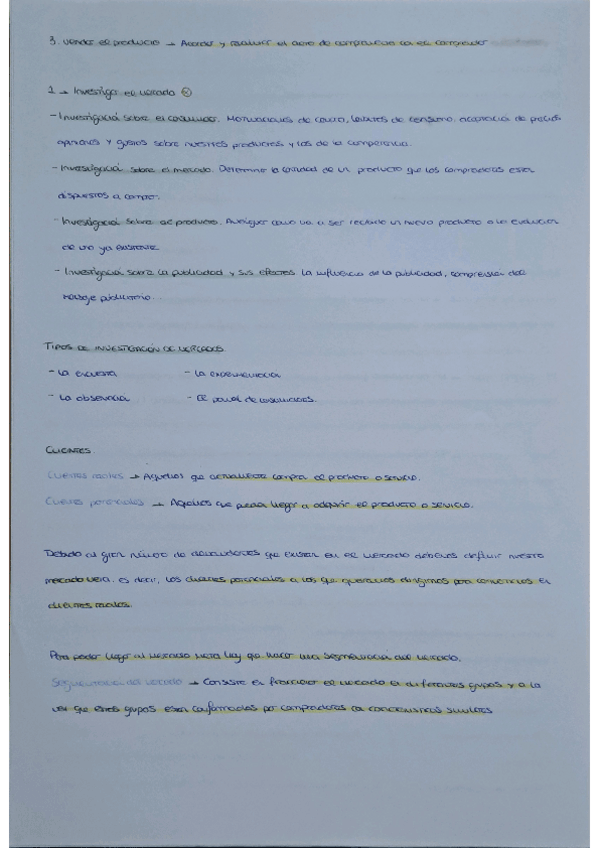 3. Vender el producto → Acordar y realizar el acto de compraventa con el comprador
1 → Investigar el mercado
- Investigación sobre el consumidor. Motivaciones de compra, hábitos de consumo, aceptación de precios
opiniones y gustos sobre nuestros productos y los de la competencia.
- Investigación sobre el mercado. Determina la cantidad de un producto que los compradores están
dispuestos a comprar.
- Investigación sobre el producto. Averiguar como va a ser recibido un nuevo producto o la evolución
de uno ya existente
- Investigación sobre la publicidad y sus efectos. La influencia de la publicidad, comprensión del
mensaje publicitario...
TIPOS DE INVESTIGACIÓN DE MERCADOS
- La encuesta - La experimentación
- La observación - El panel de consumidores.
CLIENTES
Clientes reales → Aquellos que actualmente compran el producto o servicio.
Clientes potenciales → Aquellos que pueden llegar a adquirir el producto o servicio.
Debido al gran número de demandantes que existen en el mercado debemos definir nuestro
mercado meta. es decir, los clientes potenciales a los que queremos dirigirnos para convencerlos en
clientes reales.
Para poder llegar al mercado meta hay que hacer una segmentación del mercado.
Segmentación del mercado → Consiste en fraccionar el mercado en diferentes grupos y a la
vez que estos grupos estén conformados por compradores con características similares